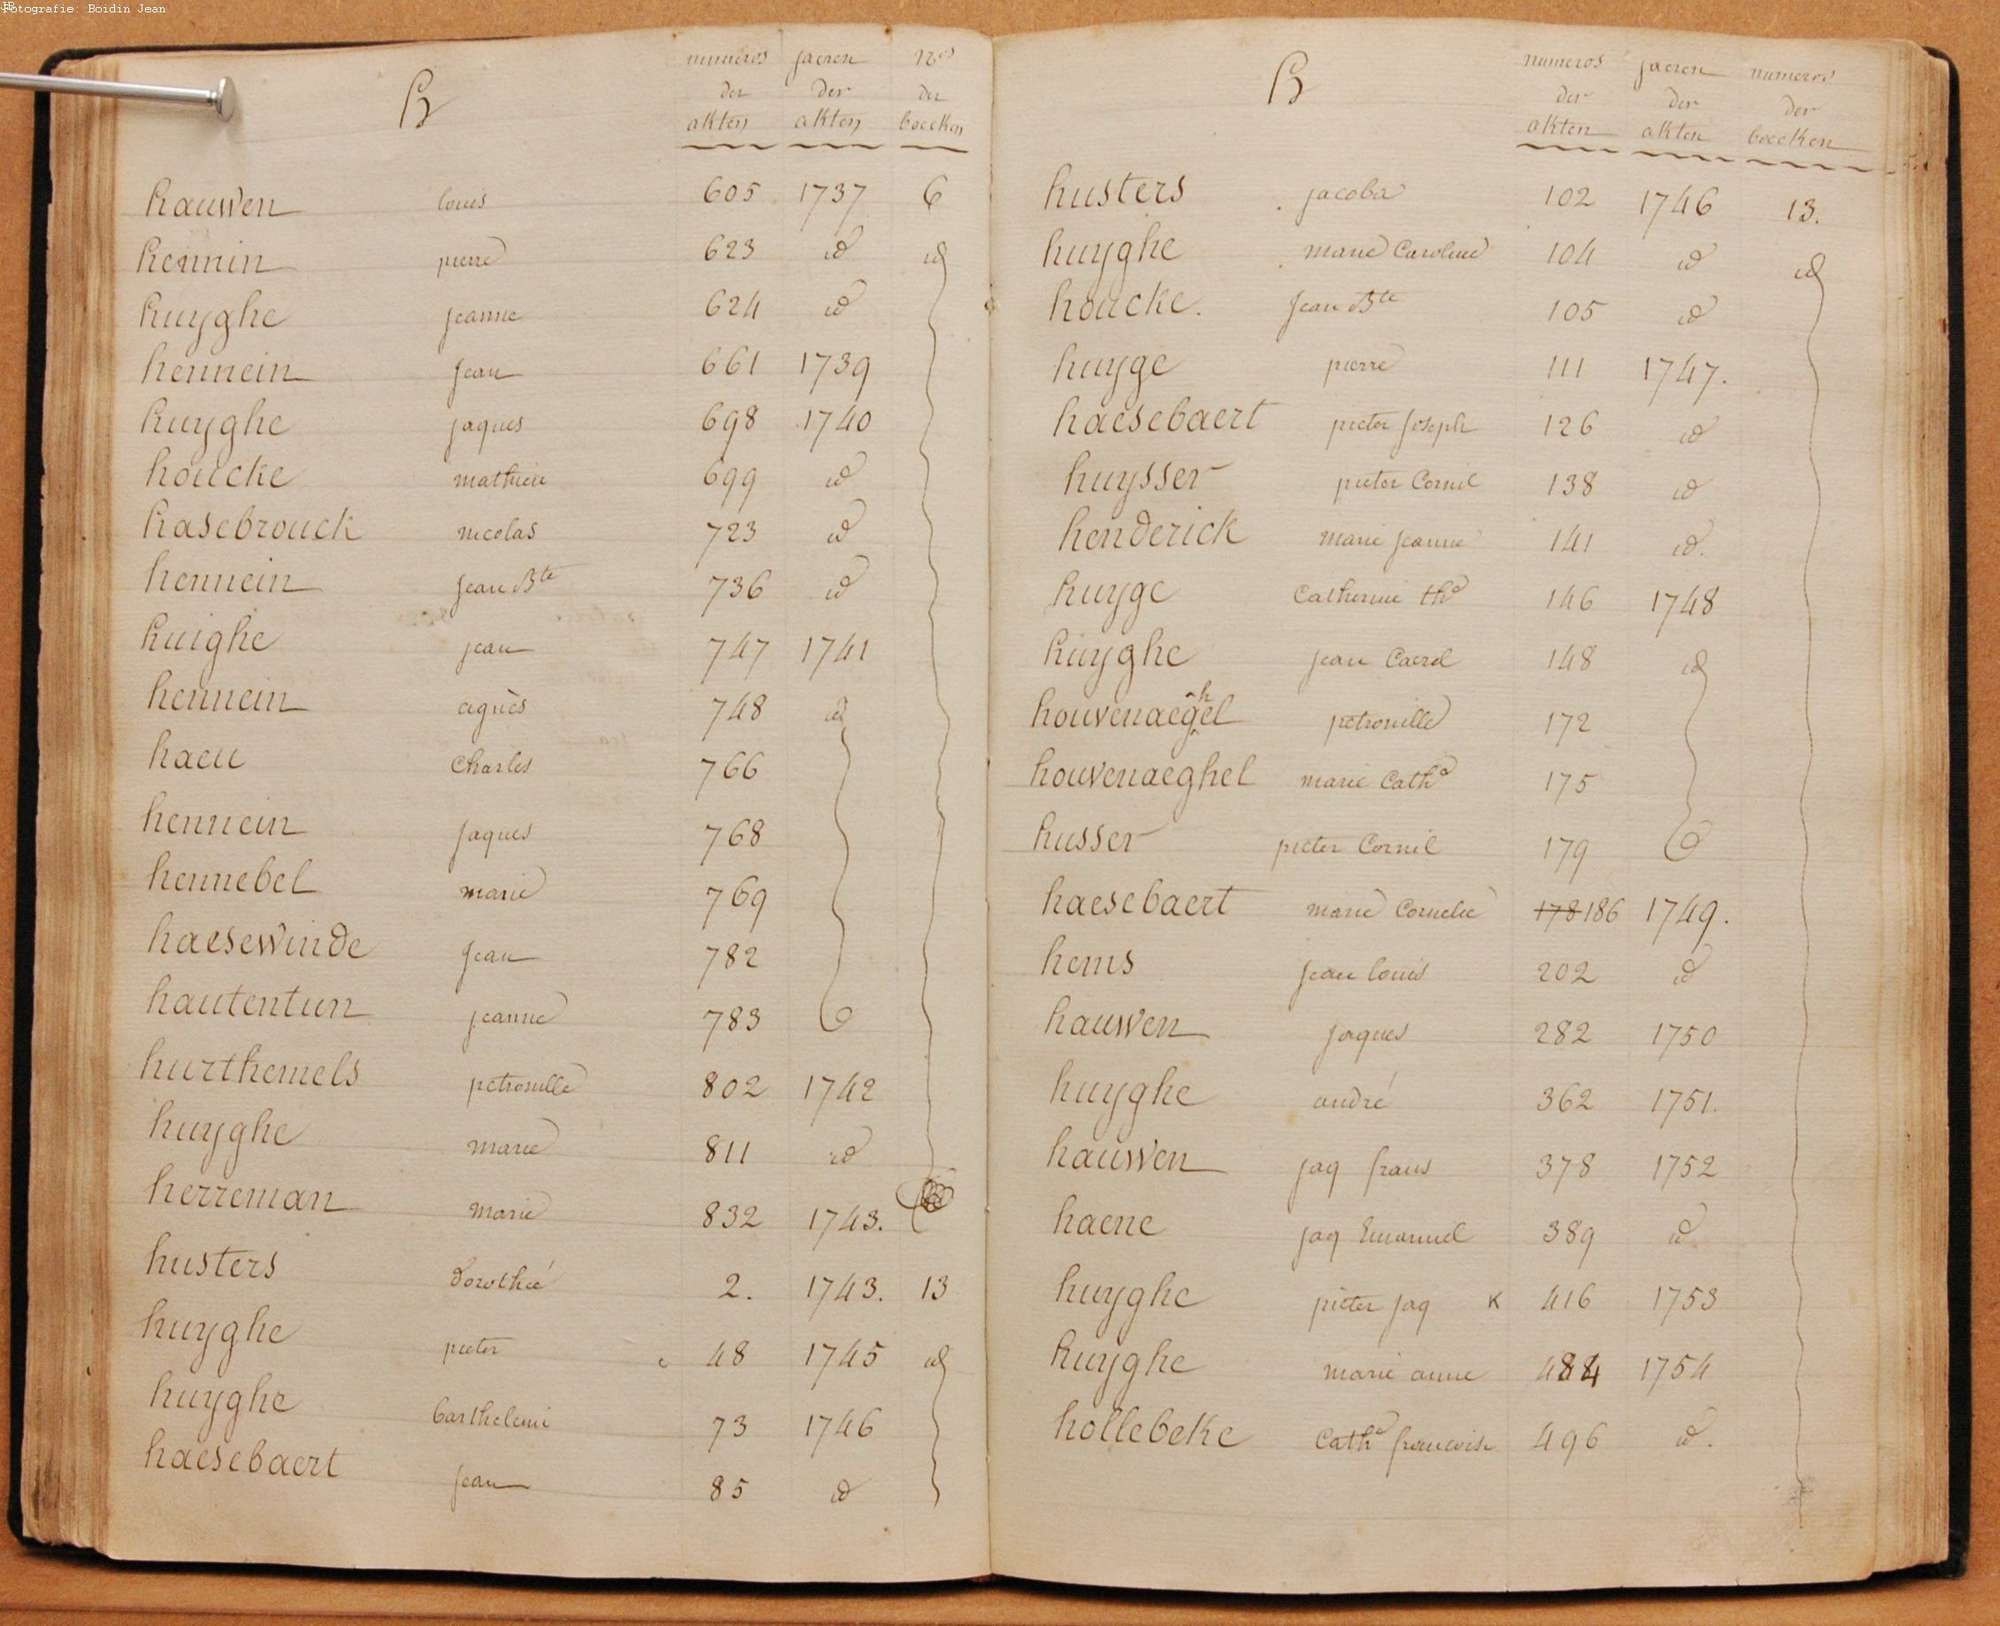 Fotografie: Boidin Jean
H numeros jaeren nos
der der der
akten akten boecken
hauwen louis 605 1737 6
hennin pierre 623 id id
huyghe jeanne 624 id
hennein jean 661 1739
huyghe jaques 698 1740
houcke mathieu 699 id
hasebrouck nicolas 723 id
hennein jean Bte 736 id
huighe jean 747 1741
hennein agnès 748 id
haeu Charles 766
hennein jaques 768
hennebel marie 769
haesewinde jean 782
hautentun jeanne 783
hurthemels petronille 802 1742
huyghe marie 811 id
herreman marie 832 1743.
husters Dorothée 2. 1743. 13
huyghe pieter 48 1745 id
huyghe barthelemi 73 1746
haesebaert jean 85 id
H numeros jaeren numeros
der der der
akten akten boecken
husters jacoba 102 1746 13.
huyghe marie Caroline 104 id id
houcke. jean Bte 105 id
huyge pierre 111 1747.
haesebaert pieter joseph 126 id
huysser pieter Cornil 138 id
henderick marie jeanne 141 id.
huyge Catherine the 146 1748
huyghe jean Caerel 148 id
houvenaeghel petronille 172
houvenaeghel marie Cathe 175
husser pieter Cornil 179
haesebaert marie Cornelie 178 186 1749.
hems jean louis 202 id
hauwen jaques 282 1750
huyghe andré 362 1751.
hauwen jaq frans 378 1752
haene jaq Emanuel 389 id
huyghe pieter jaq K 416 1753
huyghe marie anne 484 1754
hollebeke Cathe francoise 496 id.